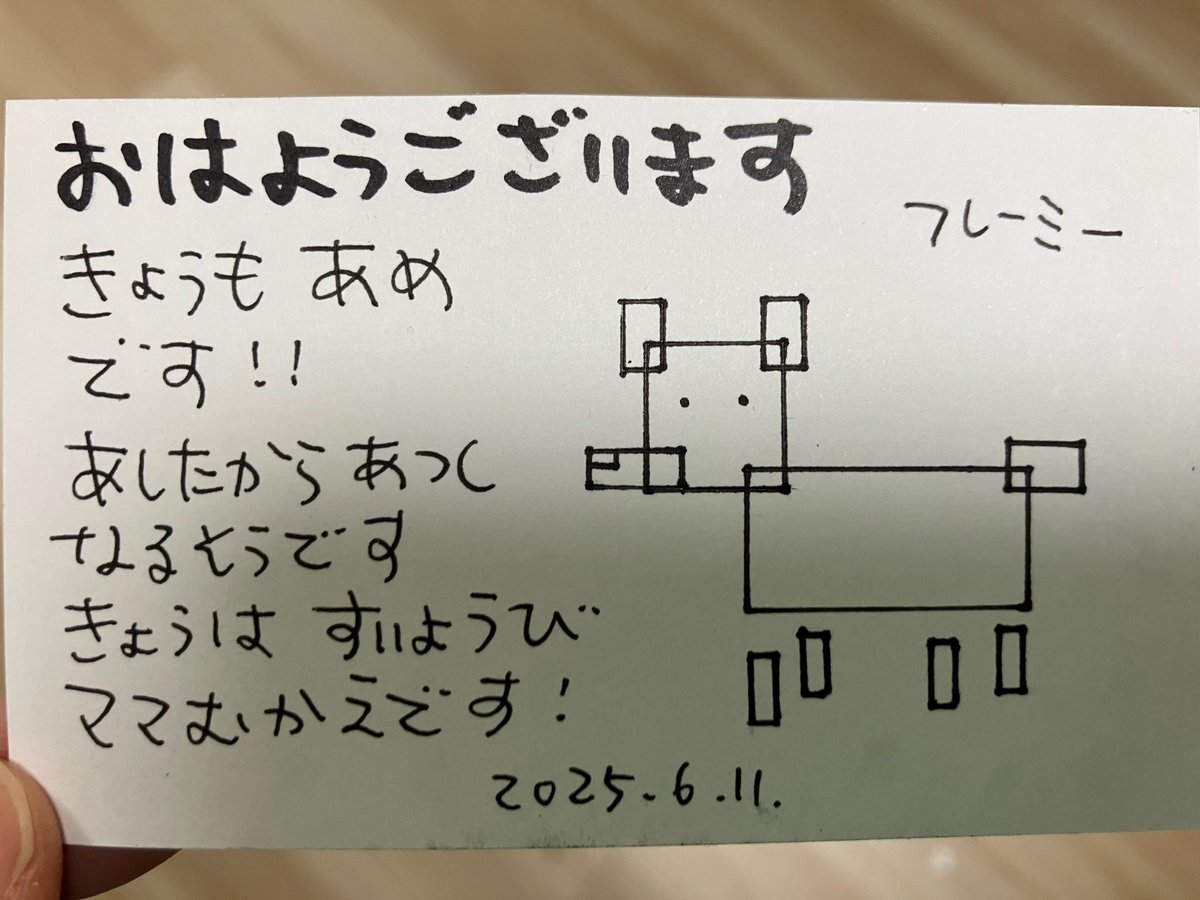 おはようございます
フレーミー
きょうも あめ
です!!
あしたから あつく
なるそうです
きょうは すいようび
ママむかえです!
2025.6.11.